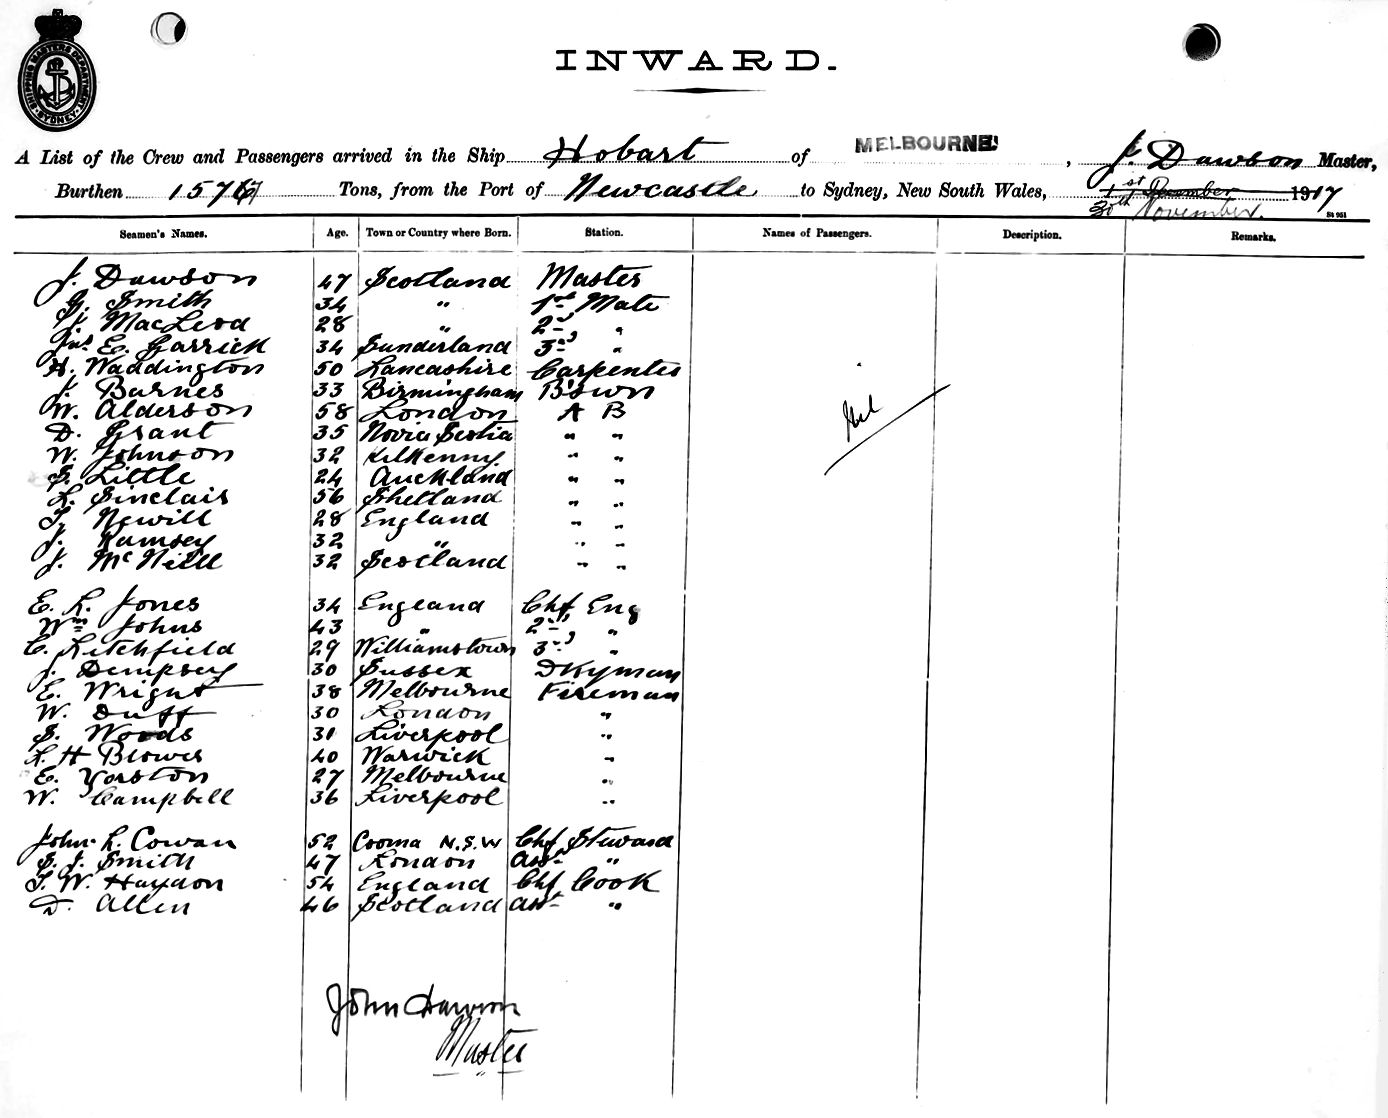 SHIPPING MASTERS DEPARTMENT SYDNEY
INWARD.
A List of the Crew and Passengers arrived in the Ship Hobart of MELBOURNE, J. Dawson Master,
Burthen Tons, from the Port of Newcastle to Sydney, New South Wales, 1st December 1917
30th November.
St 951
Seamen's Names. Age. Town or Country where Born. Station. Names of Passengers. Description. Remarks.
J. Dawson 47 Scotland Master
G. Smith 34 " 1st Mate
J. MacLeod 28 " 2nd "
Jas E. Garrick 34 Sunderland 3rd "
H. Waddington 50 Lancashire Carpenter
J. Barnes 33 Birmingham B'swn
W. Alderson 58 London A B
D. Grant 35 Novia Scotia " "
W. Johnson 32 Kilkenny " "
S. Little 24 Auckland " "
L. Sinclair 56 Shetland " "
T. Newill 28 England " "
J. Ramsey 32 " " "
J. McNeill 32 Scotland " "
Nil
E. L. Jones 34 England Chf Eng
Wm Johns 43 " 2nd "
C. Litchfield 29 Williamstown 3rd "
J. Dempsey 30 Sussex Dkyman
E. Wright 38 Melbourne Fireman
W. Duff 30 London "
S. Woods 31 Liverpool "
L. H Blower 40 Warwick "
E. Yorston 27 Melbourne "
W. Campbell 36 Liverpool "
John L. Cowan 52 Cooma N.S.W Chf Steward
S. J. Smith 47 London Asst "
T. W. Haydon 54 England Chf Cook
D. Allen 46 Scotland Asst "
John Dawson
Master